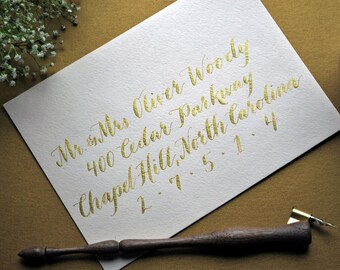 Mr & Mrs Oliver Woody
400 Cedar Parkway
Chapel Hill, North Carolina
2 · 7 · 5 · 1 · 4